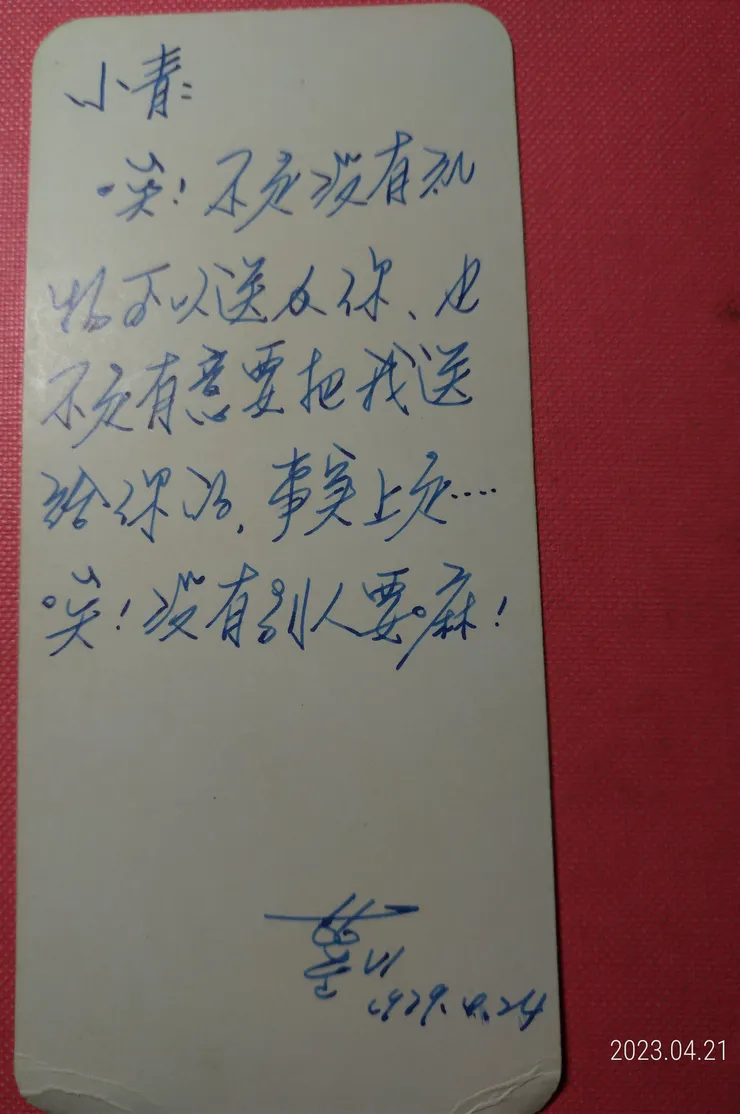 小青:
唉!不是没有礼
物可以送给你、也
不是有意要把我送
给你的,事实上是····
唉!没有别人要嘛!
1979.4.24
2023.04.21